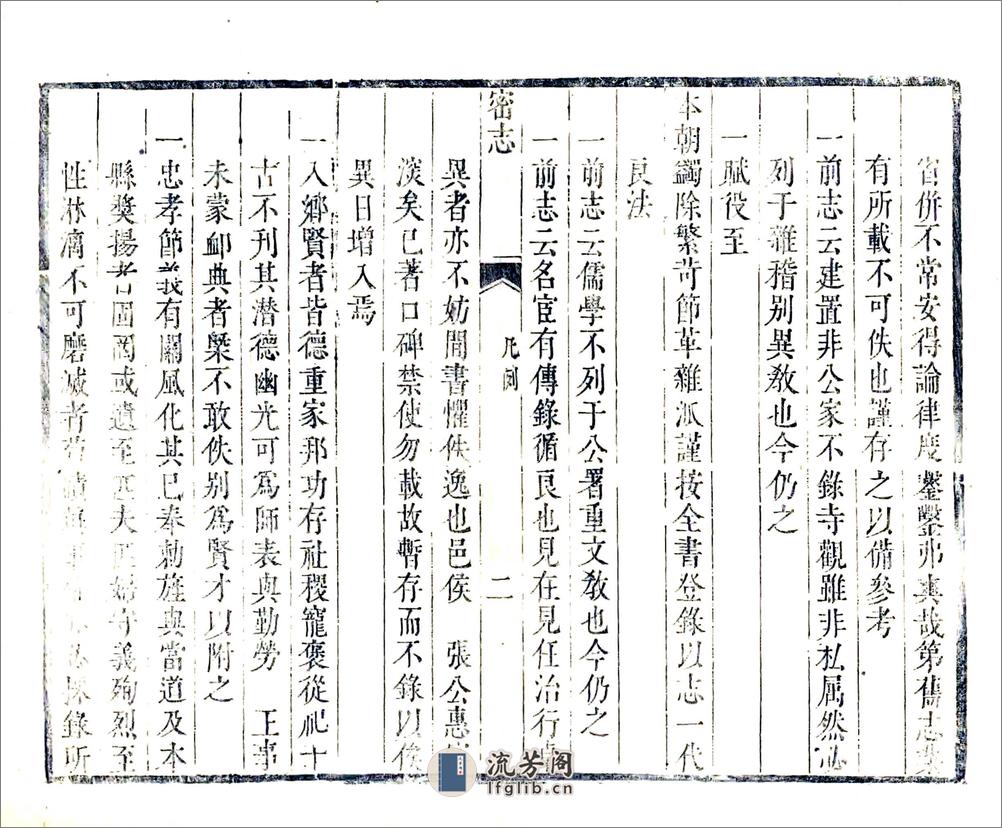 省併不常安得論律度鑿鑿弗爽哉第舊志
有所載不可佚也謹存之以備參考
一前志云建置非公家不錄寺觀雖非私属然
列于雜稽别異敎也今仍之
一賦役至
本朝蠲除繁苛節革雜泒謹按全書登錄以志一代
良法
一前志云儒學不列于公署重文敎也今仍之
一前志云名宦有傳錄循良也見在見任治行
密志
凡例
二
異者亦不妨間書懼佚逸也邑侯 張公惠
淡矣已著口碑禁使勿載故暫存而不錄以俟
異日增入焉
一入鄉賢者皆德重家邦功存社稷寵褒從祀千
古不刊其潜德幽光可爲師表與勤勞 王事
未蒙䘏典者槩不敢佚别爲賢才以附之
一忠孝節義有關風化其已奉勅旌與當道及本
縣獎揚者固罔或遺至匹夫匹婦守義殉烈至
性淋漓不可磨滅者 採錄所
流芳阁
lfglib.cn